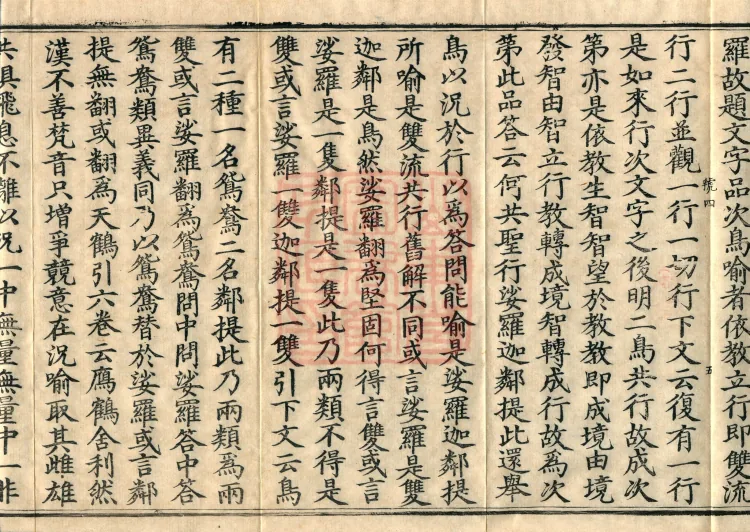 羅故題文字品次鳥喻者依教立行即雙流
行二行並觀一行一切行下文云復有一行
是如來行次文字之後明二鳥共行故成次
第亦是依教生智智望於教教即成境由境
發智由智立行教轉成境智轉成行故為次
第此品答云何共聖行娑羅迦鄰提此還舉
鳥以況於行以爲答問能喻是娑羅迦鄰提
所喻是雙流共行舊解不同或言娑羅是雙
迦鄰是鳥然娑羅翻爲堅固何得言雙或言
娑羅是一隻鄰提是一隻此乃兩類不得是
雙或言娑羅一雙迦鄰提一雙引下文云鳥
有二種一名鴛鴦二名鄰提此乃兩類爲兩
雙或言娑羅翻爲鴛鴦問中問娑羅答中答
鴛鴦類異義同乃以鴛鴦替於娑羅或言鄰
提無翻或翻為天鶴引六卷云鴈鶴舍利然
漢不善梵音只增爭競意在況喻取其雌雄
共俱飛息不離以況一中無量無量中一非
號四
五